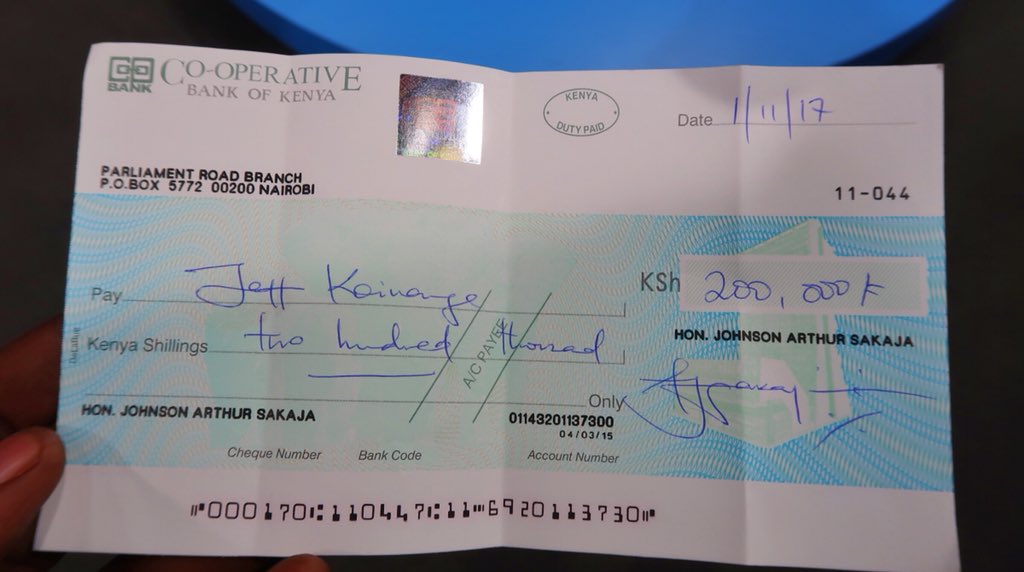 CO-OPERATIVE
BANK
BANK OF KENYA
KENYA
DUTY PAID
Date 1/11/17
PARLIAMENT ROAD BRANCH
P.O.BOX 5772 00200 NAIROBI
11-044
Pay Jeff Koinange
KSh 200,000/=
Kenya Shillings two hundred thousand
A/C PAYEE
HON. JOHNSON ARTHUR SAKAJA
Only
HON. JOHNSON ARTHUR SAKAJA
01143201137300
04/03/15
Cheque Number Bank Code Account Number
⑈000170⑆110447⑆11⑉6920113730⑈